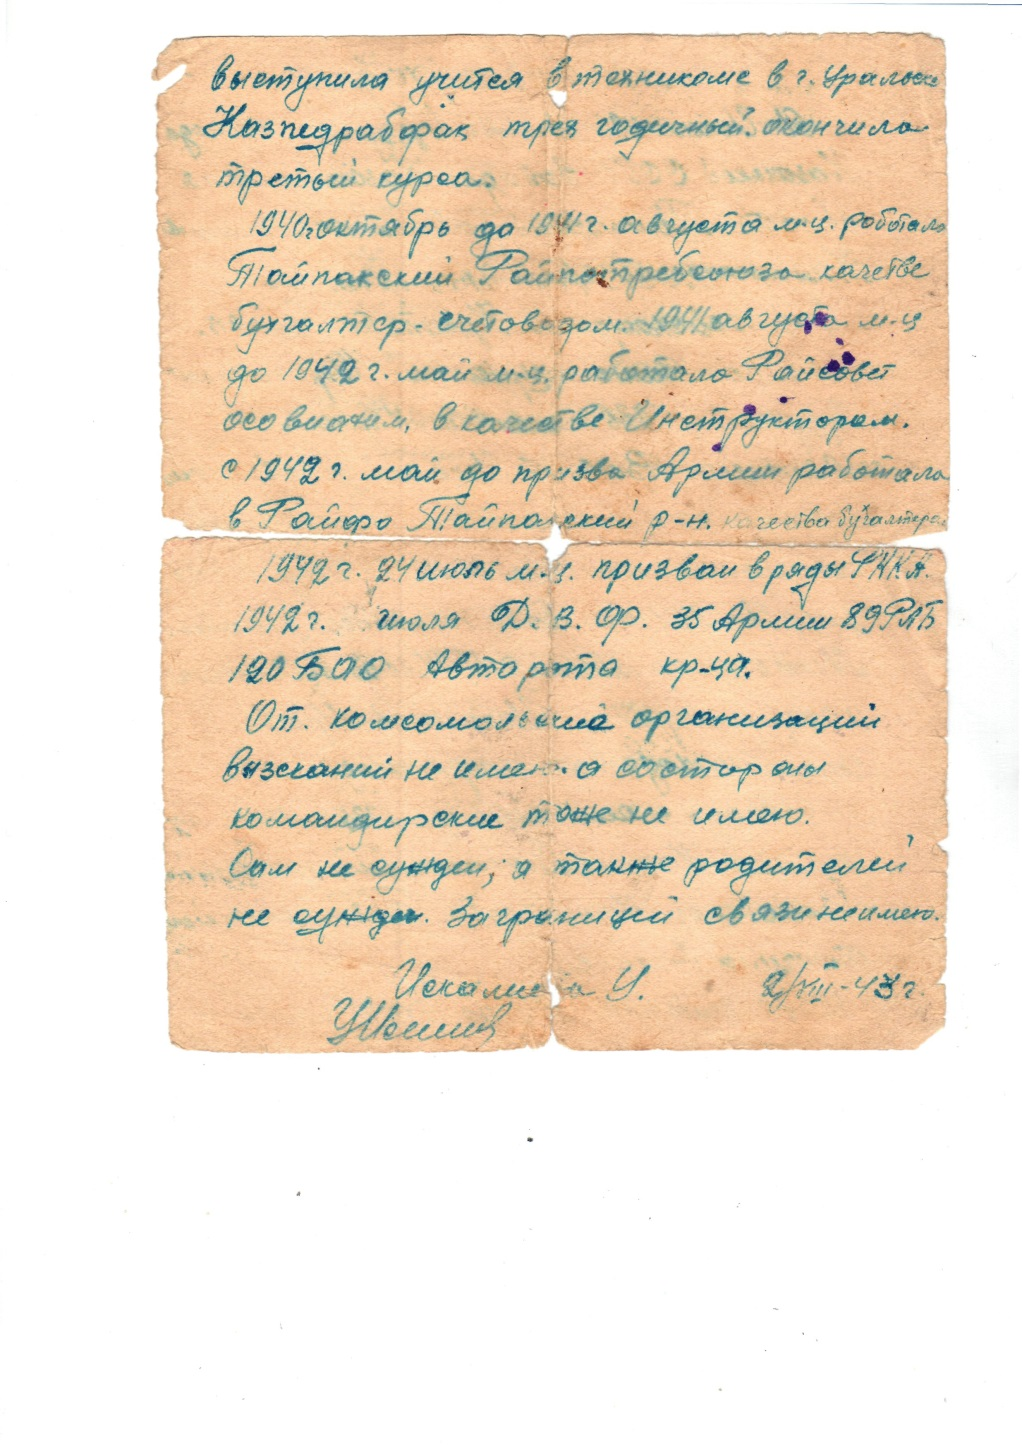 выступила учится в техникоме в г. Уральске
Казпедрабфак трех годичный. окончила
третьий курса.
1940г октябрь до 1941 г. августа м-ц. работала
Тайпакский Райпотребсоюза качестве
бухгалтер-счетоводом. 1941 августа м-ц
до 1942 г. май м-ц. работала Райсовет
осовиахим, в качестве Инструктором.
с 1942 г. май до призва Армии работала
в Райфо Тайпакский р-н. качества бухгалтера
1942 г. 24 июль м-ц. призван в ряды РККА.
1942 г. июля Д. В. Ф. 35 Армии 89 РАБ
120 БАО Авторота кр-ца.
От. комсомольский организаций
взысканий не имею. а со стороны
командирские тоже не имею.
Сам не сужден; а также родителей
не сужден. Заграницей связи не имею.
У. 2/VIII-43 г.